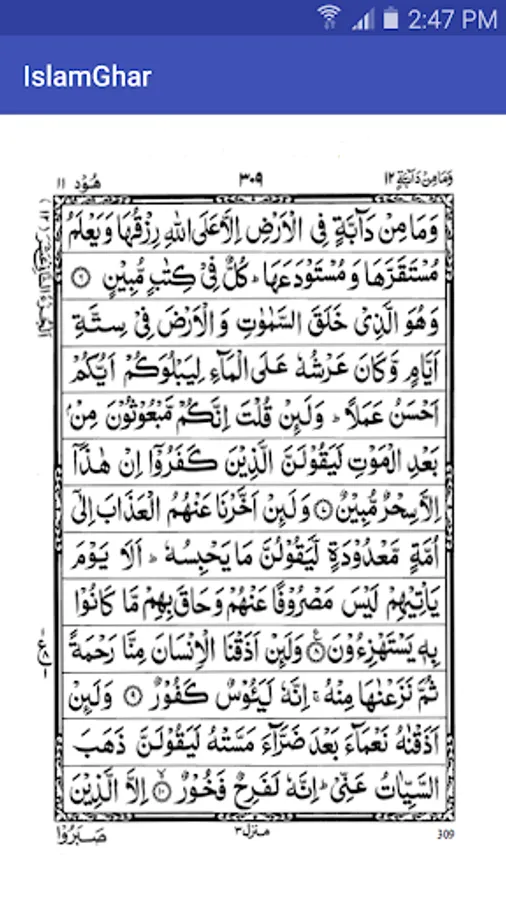 2:47 PM
IslamGhar
وَمَا مِنْ دَآبَّةٍ ١٢
٣٠٩
هُوْد ١١
وَمَا مِنْ دَآبَّةٍ فِی الْاَرْضِ اِلَّا عَلَی اللّٰهِ رِزْقُهَا وَیَعْلَمُ
مُسْتَقَرَّهَا وَمُسْتَوْدَعَهَا ؕ كُلٌّ فِیْ كِتٰبٍ مُّبِیْنٍ ۝۶
وَهُوَ الَّذِیْ خَلَقَ السَّمٰوٰتِ وَالْاَرْضَ فِیْ سِتَّةِ
اَیَّامٍ وَّكَانَ عَرْشُهٗ عَلَی الْمَآءِ لِیَبْلُوَكُمْ اَیُّكُمْ
اَحْسَنُ عَمَلًا ؕ وَلَىِٕنْ قُلْتَ اِنَّكُمْ مَّبْعُوْثُوْنَ مِنْۢ
بَعْدِ الْمَوْتِ لَیَقُوْلَنَّ الَّذِیْنَ كَفَرُوْۤا اِنْ هٰذَاۤ
اِلَّا سِحْرٌ مُّبِیْنٌ ۝۷ وَلَىِٕنْ اَخَّرْنَا عَنْهُمُ الْعَذَابَ اِلٰۤی
اُمَّةٍ مَّعْدُوْدَةٍ لَّیَقُوْلُنَّ مَا یَحْبِسُهٗ ؕ اَلَا یَوْمَ
یَاْتِیْهِمْ لَیْسَ مَصْرُوْفًا عَنْهُمْ وَحَاقَ بِهِمْ مَّا كَانُوْا
بِهٖ یَسْتَهْزِءُوْنَ ۝۸ وَلَىِٕنْ اَذَقْنَا الْاِنْسَانَ مِنَّا رَحْمَةً
ثُمَّ نَزَعْنٰهَا مِنْهُ ۚ اِنَّهٗ لَیَـُٔوْسٌ كَفُوْرٌ ۝۹ وَلَىِٕنْ
اَذَقْنٰهُ نَعْمَآءَ بَعْدَ ضَرَّآءَ مَسَّتْهُ لَیَقُوْلَنَّ ذَهَبَ
السَّیِّاٰتُ عَنِّیْ ؕ اِنَّهٗ لَفَرِحٌ فَخُوْرٌ ۝۱۰ اِلَّا الَّذِیْنَ
309
منزل ٣
صَبَرُوْا